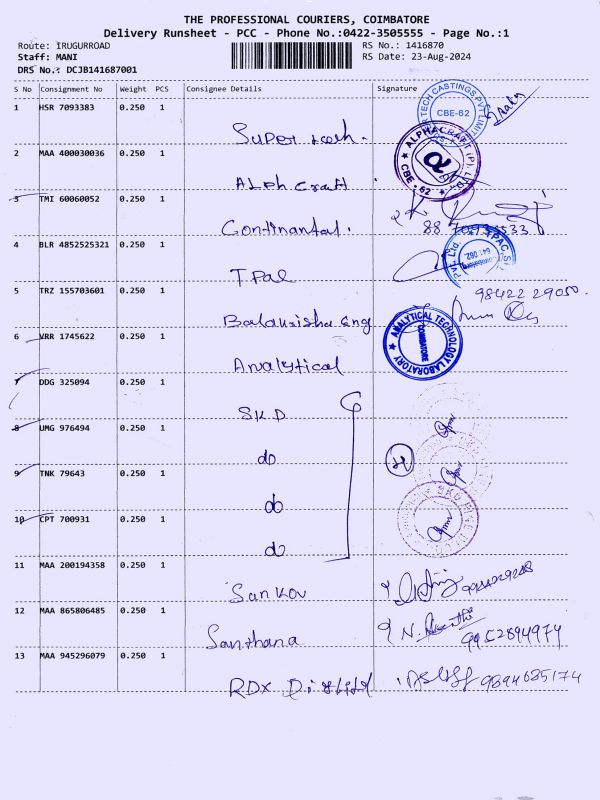 THE PROFESSIONAL COURIERS, COIMBATORE
Delivery Runsheet - PCC - Phone No.:0422-3505555 - Page No.:1
Route: IRUGURROAD RS No.: 1416870
Staff: MANI RS Date: 23-Aug-2024
DRS No.: DCJB141687001
S No Consignment No Weight PCS Consignee Details Signature
1 HSR 7093383 0.250 1
TECH CASTINGS PVT LIMIT
CBE-62
Super
2 MAA 400030036 0.250 1
ALPHACRAFT (P). LTD.
CBE - 62
Alph Craft
3 TMI 60060052 0.250 1
Continantal.
4 BLR 4852525321 0.250 1
Pvt. Ltd.
641 062
5 TRZ 155703601 0.250 1
98422 29050.
Eng
6 VRR 1745622 0.250 1
ANALYTICAL TECHNOLOGY LABORATORY
COIMBATORE
Analytical
7 DDG 325094 0.250 1
SKD
8 UMG 976494 0.250 1
do
9 TNK 79643 0.250 1
do
10 CPT 700931 0.250 1
SKD
do
11 MAA 200194358 0.250 1
12 MAA 865806485 0.250 1
Santhana N. 9952894974
13 MAA 945296079 0.250 1
RDX 9894685174